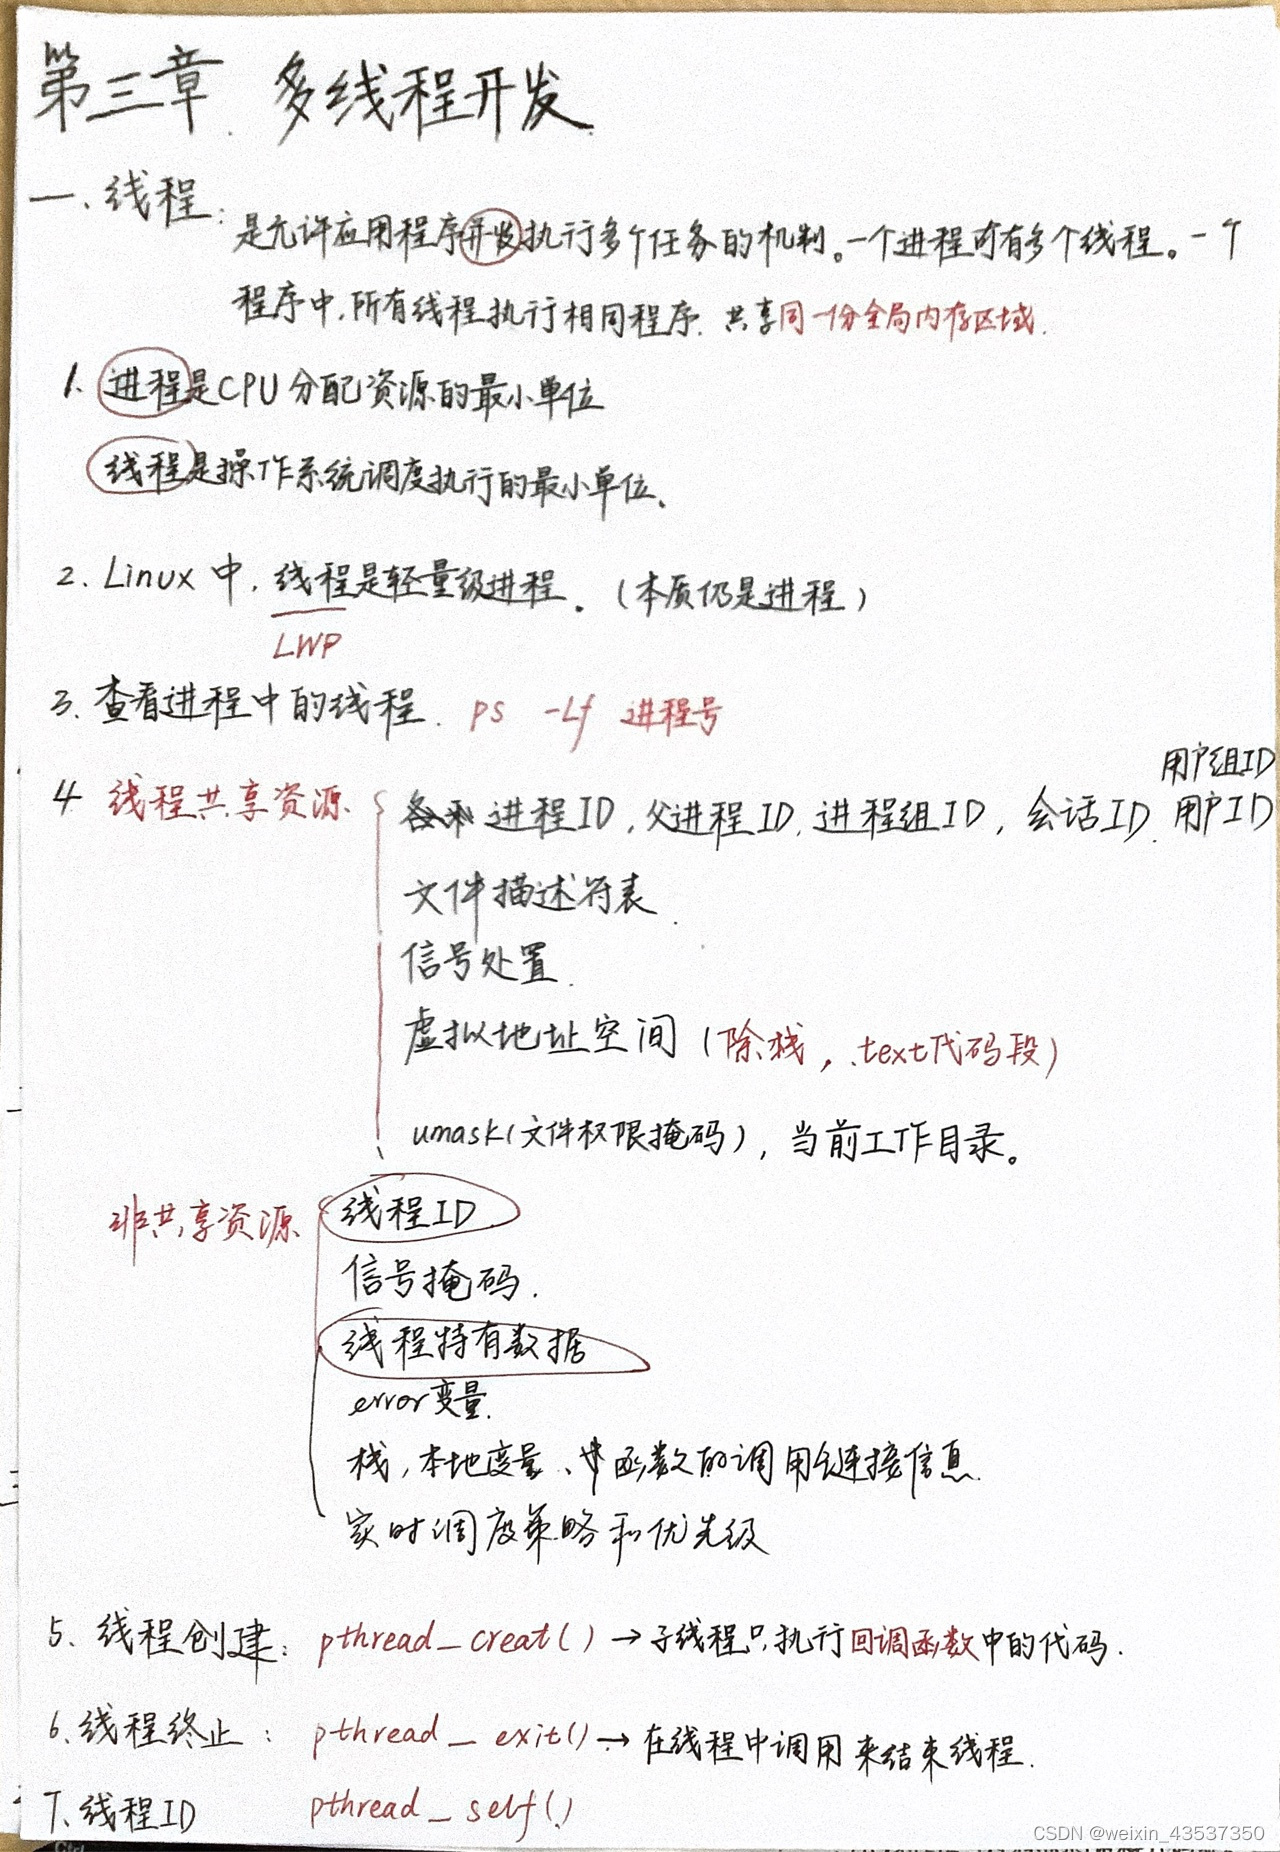 第三章 多线程开发
一、线程: 是允许应用程序并发执行多个任务的机制。一个进程可有多个线程。一个
程序中,所有线程执行相同程序.共享同一份全局内存区域.
1. 进程是CPU分配资源的最小单位
线程是操作系统调度执行的最小单位.
2. Linux 中,线程是轻量级进程。(本质仍是进程)
LWP
3. 查看进程中的线程. ps -Lf 进程号
用户组ID
4 线程共享资源 进程ID,父进程ID,进程组ID,会话ID. 用户ID
文件描述符表.
信号处置.
虚拟地址空间(除栈, .text代码段)
umask(文件权限掩码),当前工作目录。
非共享资源 线程ID
信号掩码.
线程特有数据
error变量.
栈,本地变量、函数的调用链接信息.
实时调度策略和优先级
5. 线程创建: pthread_creat() → 子线程只执行回调函数中的代码.
6.线程终止: pthread_exit() → 在线程中调用来结束线程.
7.线程ID pthread_self()
CSDN @weixin_43537350